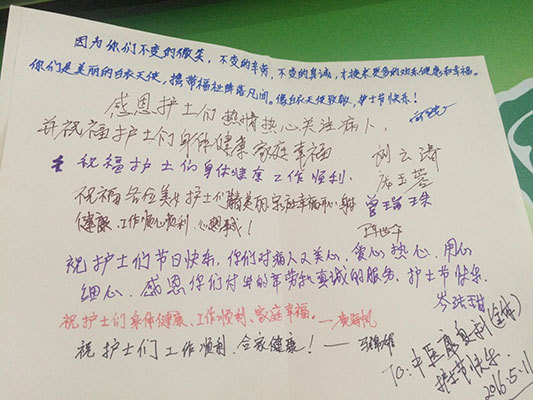 因为你们不变的微笑，不变的辛劳，不变的真诚，才换来更多的欢乐健康和幸福。
你们是美丽的白衣天使，携带福祉降落凡间。像白衣天使致敬，护士节快乐！
感恩护士们热情热心关注病人，
并祝福护士们身体健康 家庭幸福
祝福护士们身体健康 工作顺利，
刘云涛
庞玉蓉
祝福各位美女护士们
健康，工作顺心顺利，心想事成！
曾瑞珠
祝护士们节日快乐，你们对病人又关心，爱心 热心，用心
细心，感恩你们付出的辛劳和真诚的服务，护士节快乐，
岑珠甜
祝护士们身体健康、工作顺利、家庭幸福。
祝护士们工作顺利，合家健康！——
TO：中医康复科（全体）
护士节快乐
2016.5.11